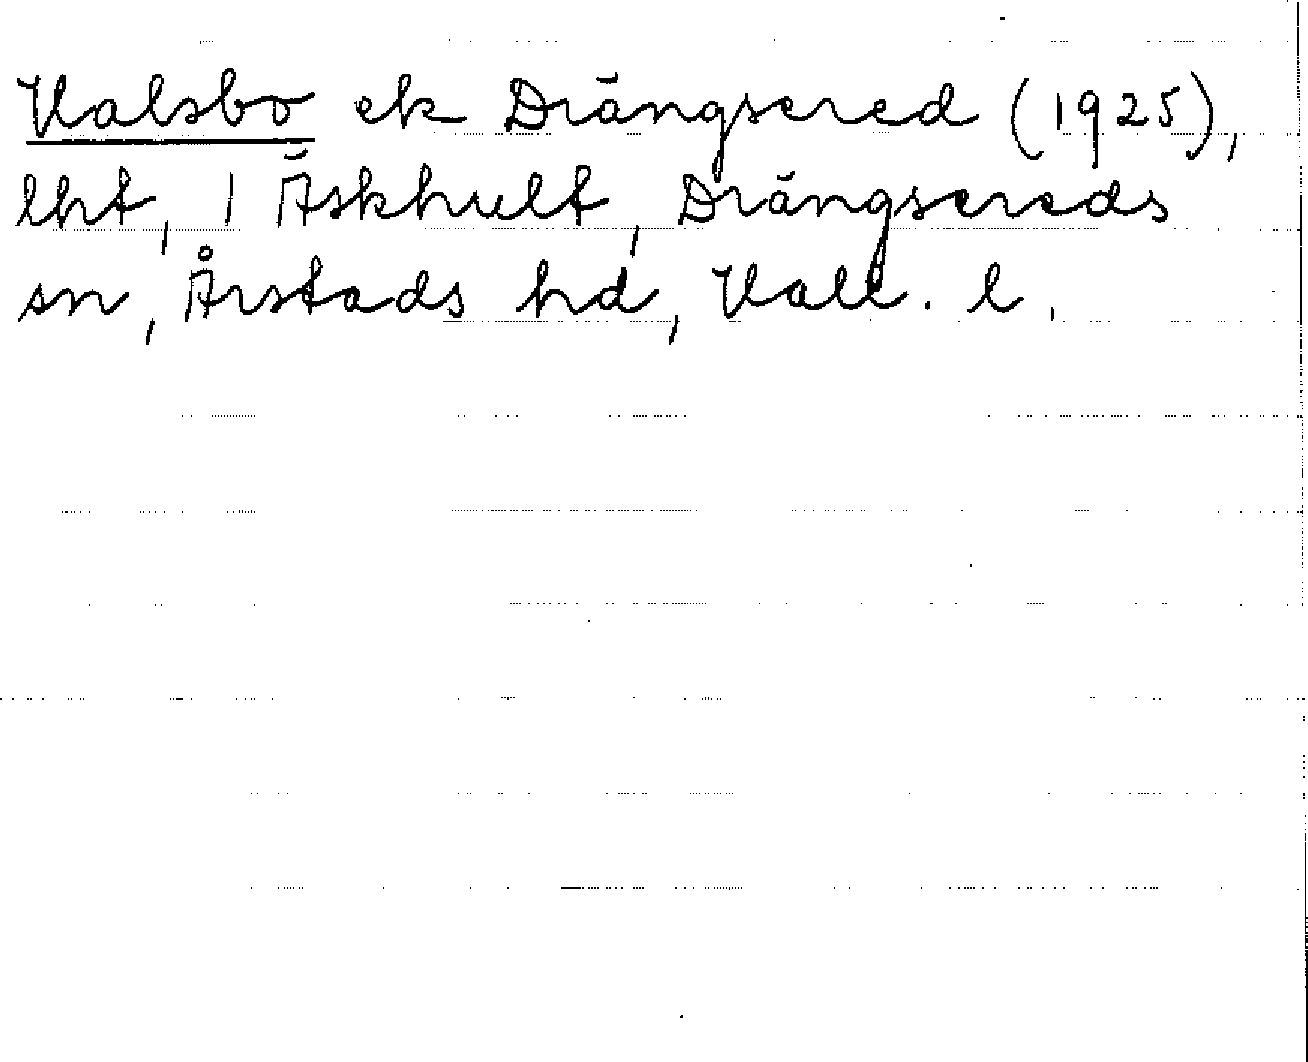 Halsbo ek Drängsered (1925),
lht, 1 Äskhult, Drängsereds
sn, Årstads hd, Hall. l.